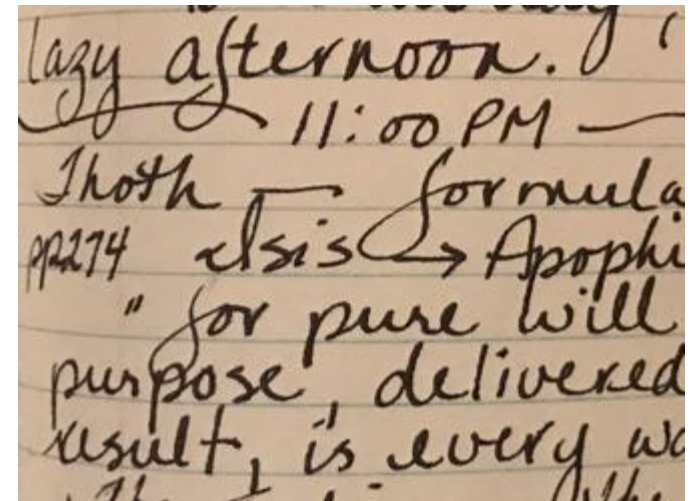 lazy afternoon.
11:00 PM
Thoth — formula
pp274 Isis → Apophi
" for pure will
purpose, delivered
result, is every wa